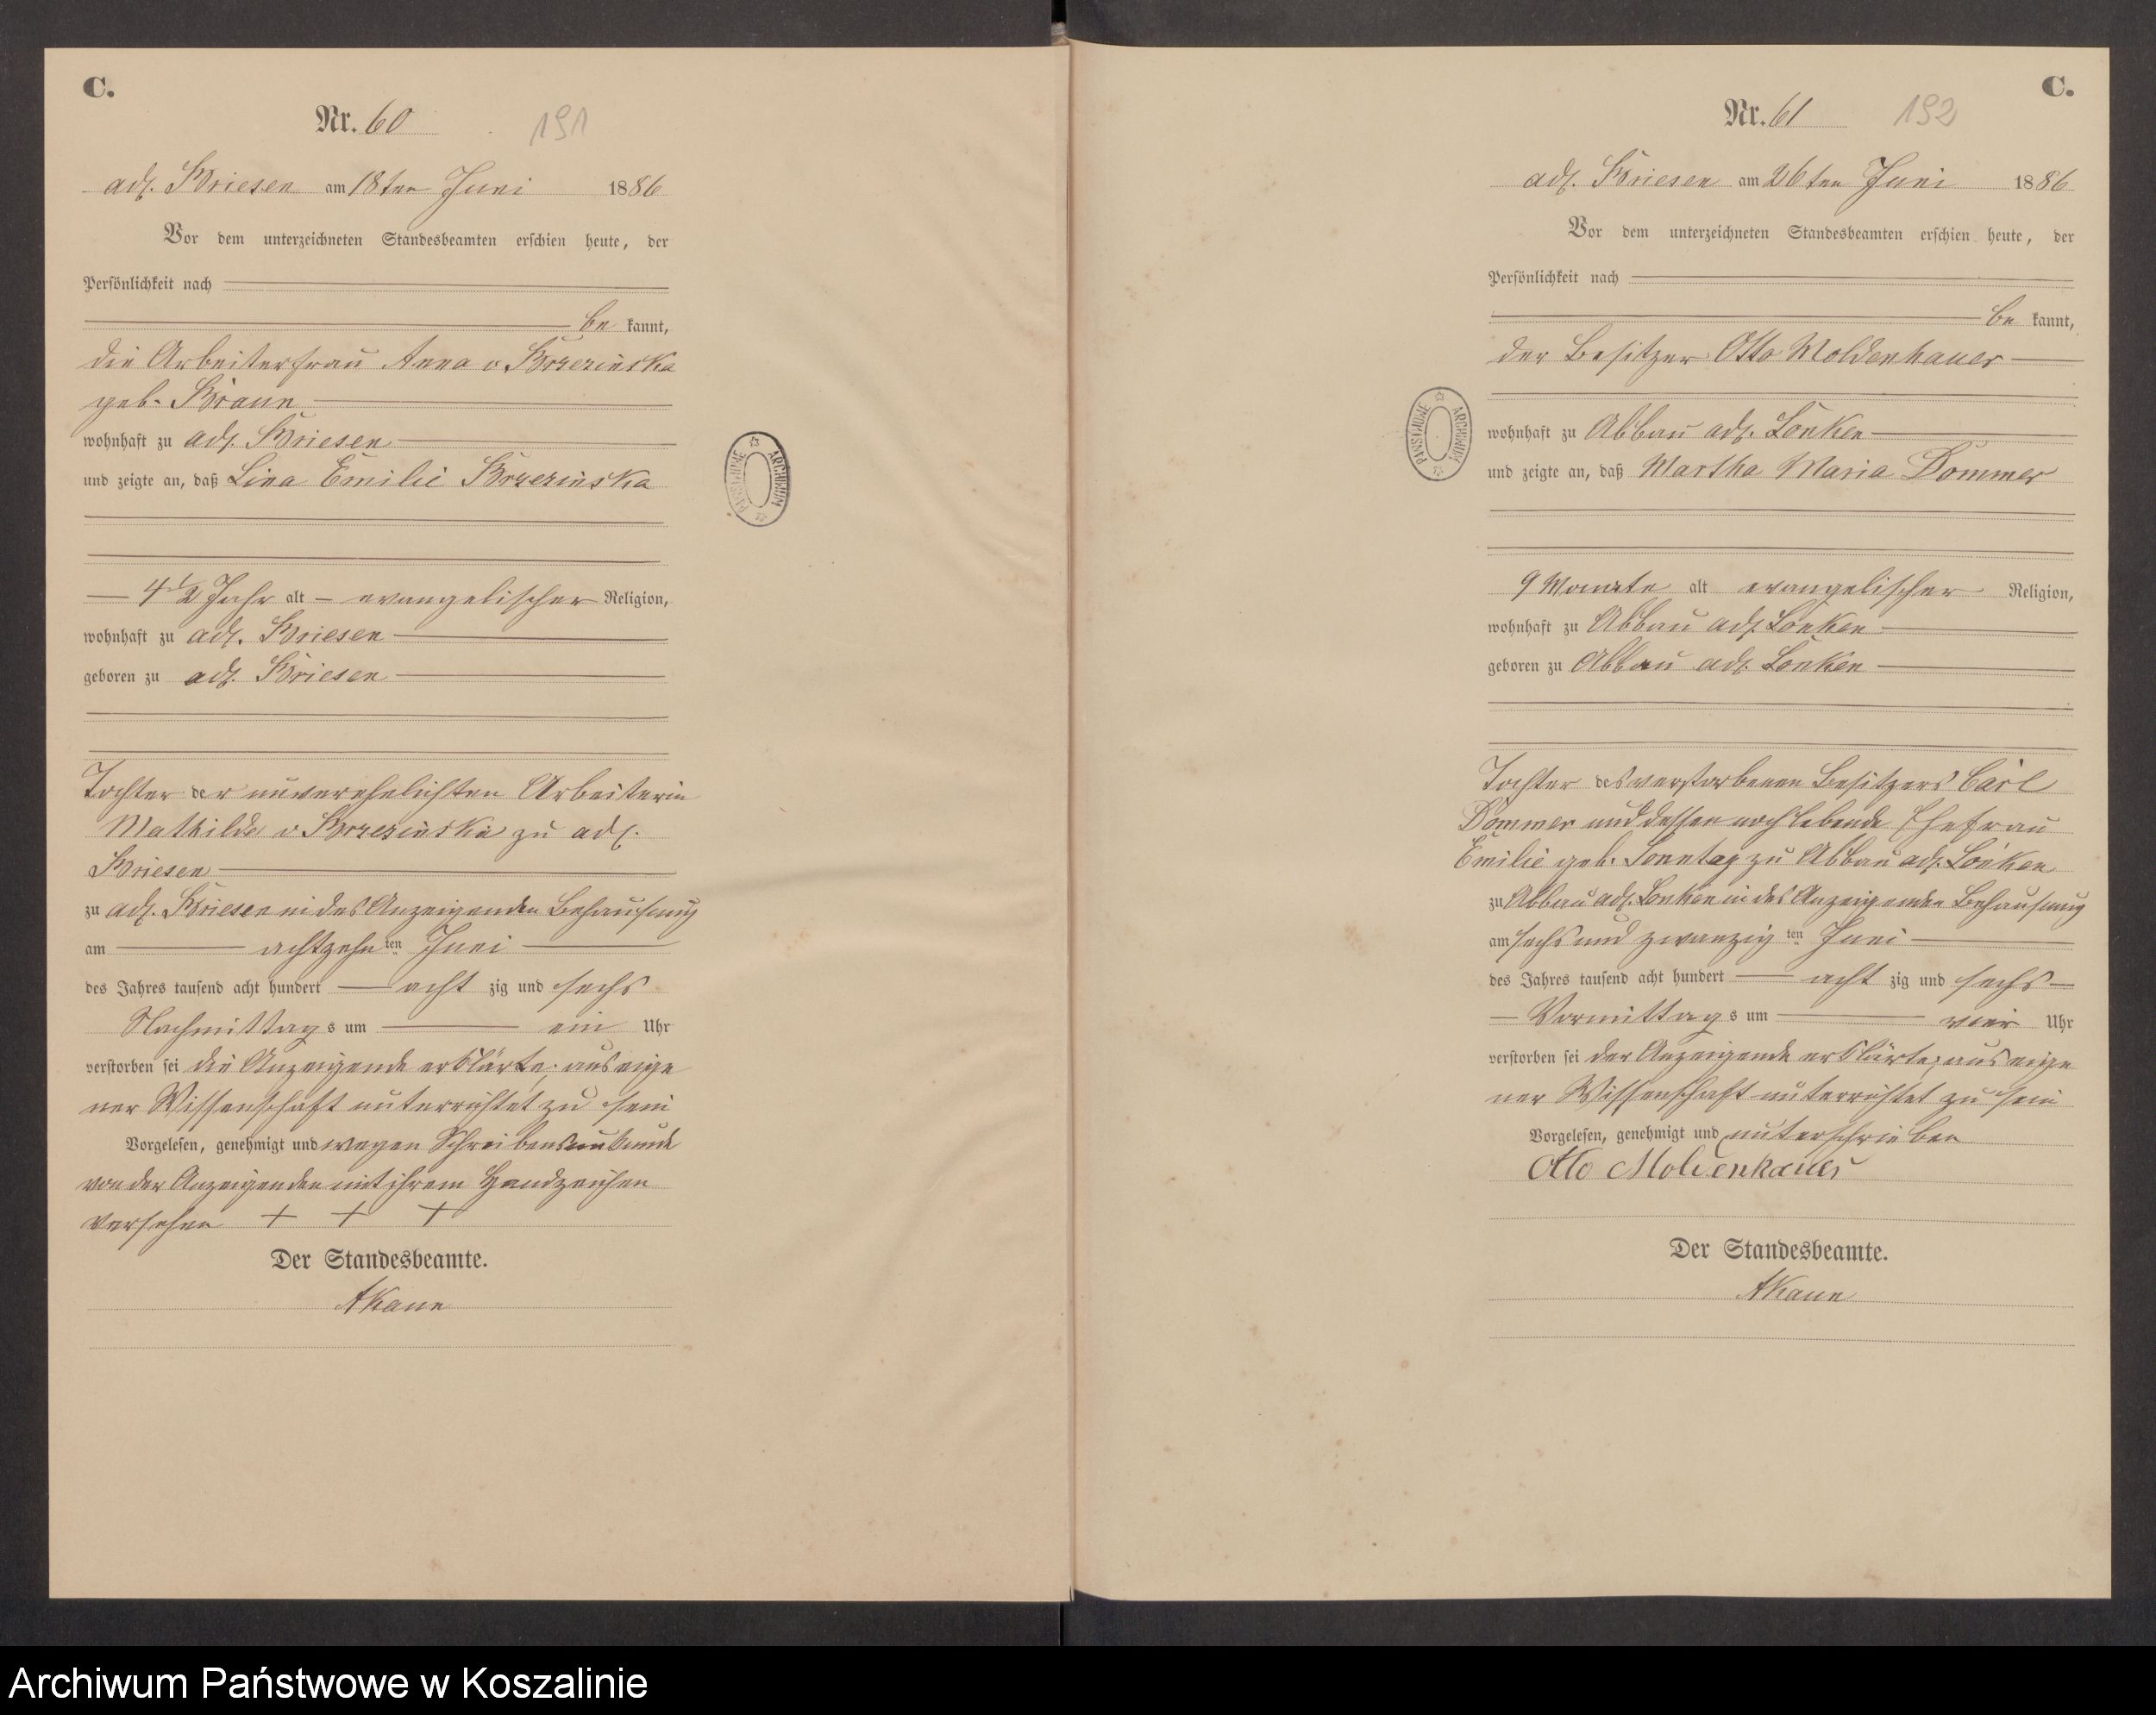 C.
Nr. 60
191
adl. Briesen am 18ten Juni 1886
Vor dem unterzeichneten Standesbeamten erschien heute, der
Persönlichkeit nach
be kannt,
die Arbeiterfrau Anna v Brzezinska
geb. Braun
wohnhaft zu adl. Briesen
und zeigte an, daß Lina Emilie Brzezinska
4 1/2 Jahr alt evangelischer Religion,
wohnhaft zu adl. Briesen
geboren zu adl. Briesen
Tochter der unverehelichten Arbeiterin
Mathilde v Brzezinska zu adl.
Briesen
zu adl. Briesen in des Anzeigenden Behausung
am achtzehn ten Juni
des Jahres tausend acht hundert acht zig und sechs
Nachmittag s um ein Uhr
verstorben sei die Anzeigende erklärte, aus eige
ner Wissenschaft unterrichtet zu sein
Vorgelesen, genehmigt und wegen Schreibensunkunde
von der Anzeigenden mit ihrem Handzeichen
versehen + + +
Der Standesbeamte.
AKaun
PAŃSTWOWE ARCHIWUM
C.
Nr. 61
192
adl. Briesen am 26ten Juni 1886
Vor dem unterzeichneten Standesbeamten erschien heute, der
Persönlichkeit nach
be kannt,
der Besitzer Otto Moldenhauer
wohnhaft zu Abbau adl. Lonken
und zeigte an, daß Martha Maria Dommer
9 Monate alt evangelischer Religion,
wohnhaft zu Abbau adl. Lonken
geboren zu Abbau adl. Lonken
Tochter des verstorbenen Besitzers Carl
Dommer und dessen noch lebende Ehefrau
Emilie geb. Sonntag zu Abbau adl. Lonken
zu Abbau adl. Lonken in des Anzeigenden Behausung
am sechs und zwanzig ten Juni
des Jahres tausend acht hundert acht zig und sechs
Vormittag s um vier Uhr
verstorben sei der Anzeigende erklärte, aus eige
ner Wissenschaft unterrichtet zu sein
Vorgelesen, genehmigt und unterschrieben
Otto Moldenhauer
Der Standesbeamte.
AKaun
PAŃSTWOWE ARCHIWUM
Archiwum Państwowe w Koszalinie